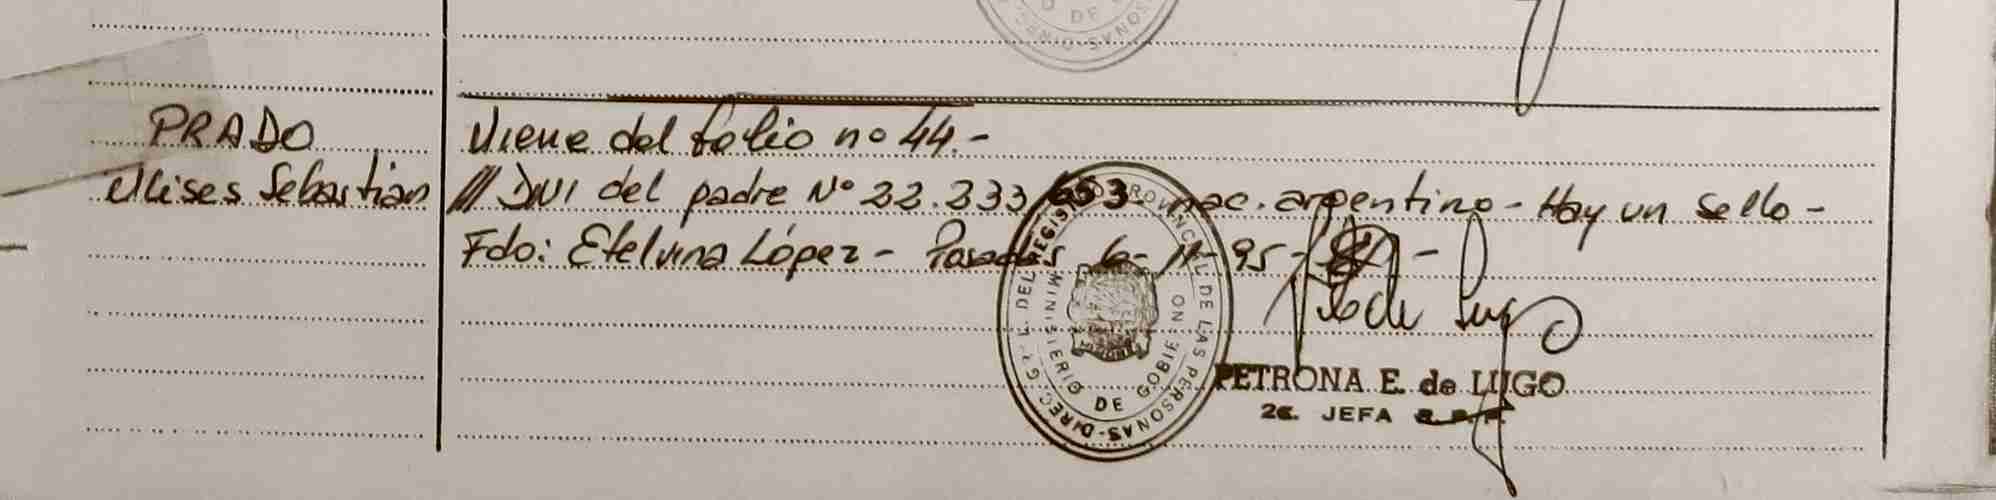 PRADO
Ulises Sebastián
Viene del folio nº 44.-
/// DNI del padre Nº 22.233.653- nac. argentino - Hay un sello -
Fdo: Etelvina López - Posadas 6-11-95-
DIREC. GRL. DEL REGISTRO PROVINCIAL DE LAS PERSONAS
MINISTERIO DE GOBIERNO
PETRONA E. de LUGO
2a. JEFA